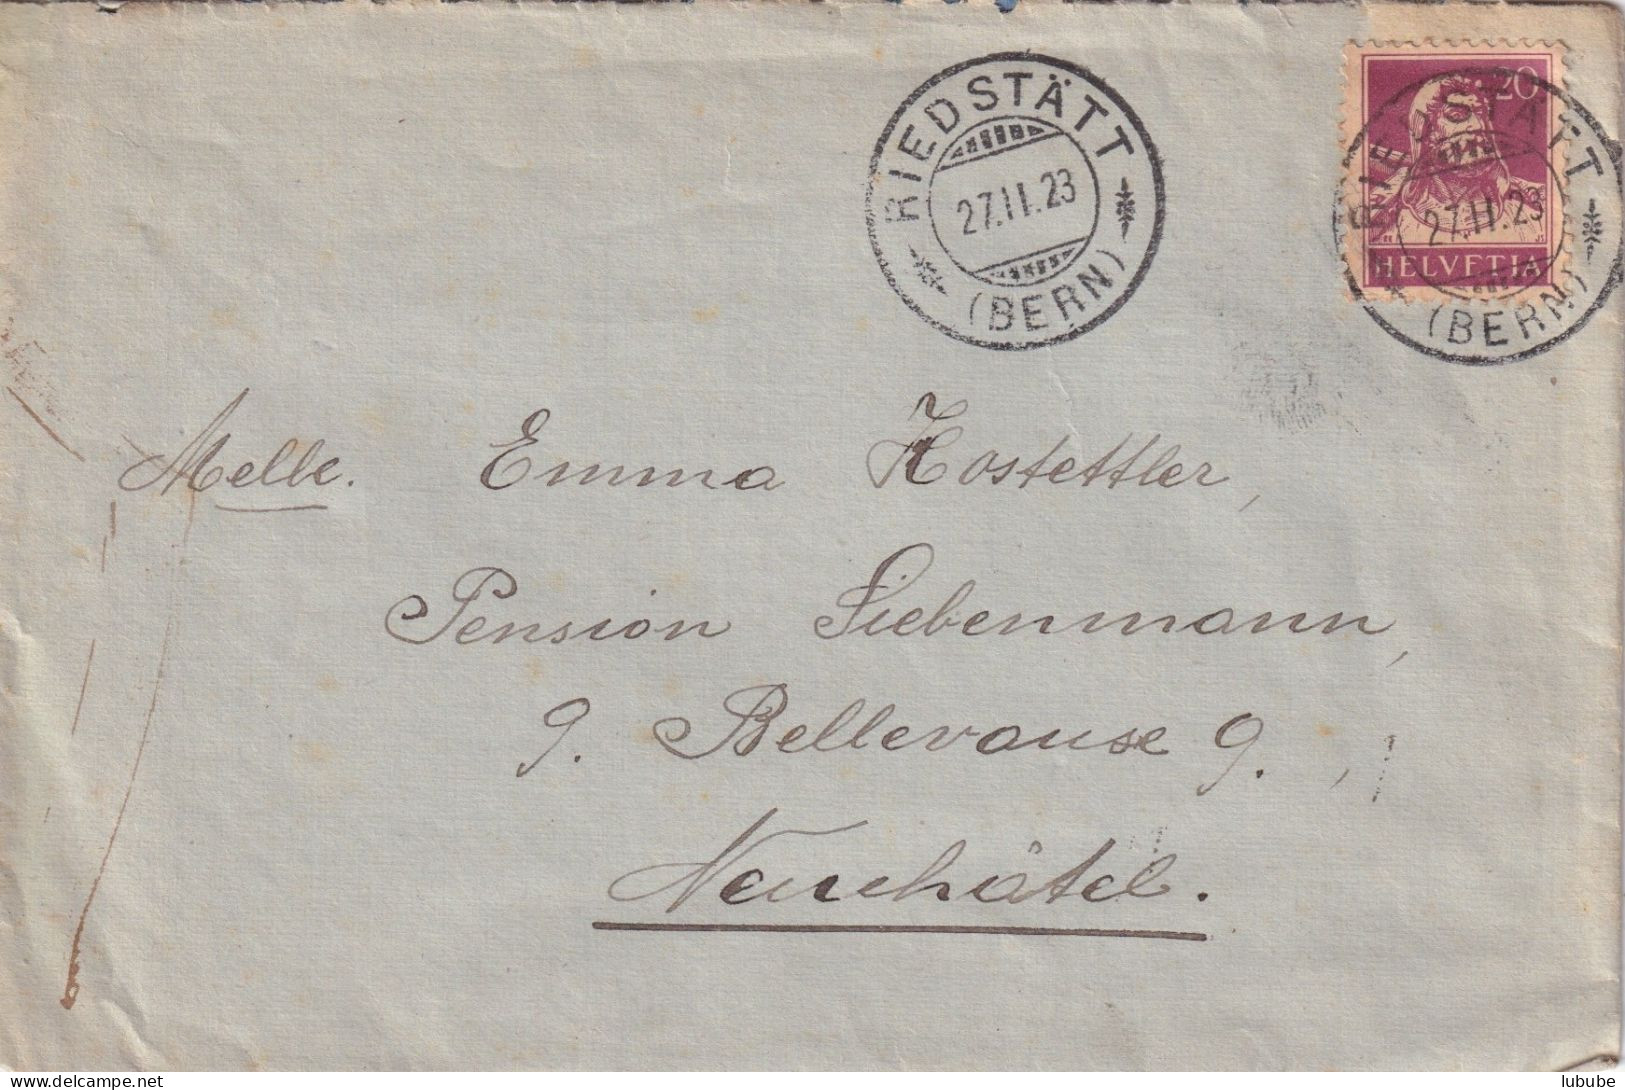 RIEDSTÄTT
27.II.23
(BERN)
20
HELVETIA
RIEDSTÄTT
27.II.23
(BERN)
Melle. Emma Hostettler,
Pension Siebenmann,
9. Bellevause 9.,
Neuchâtel.
delcampe.net
lubube